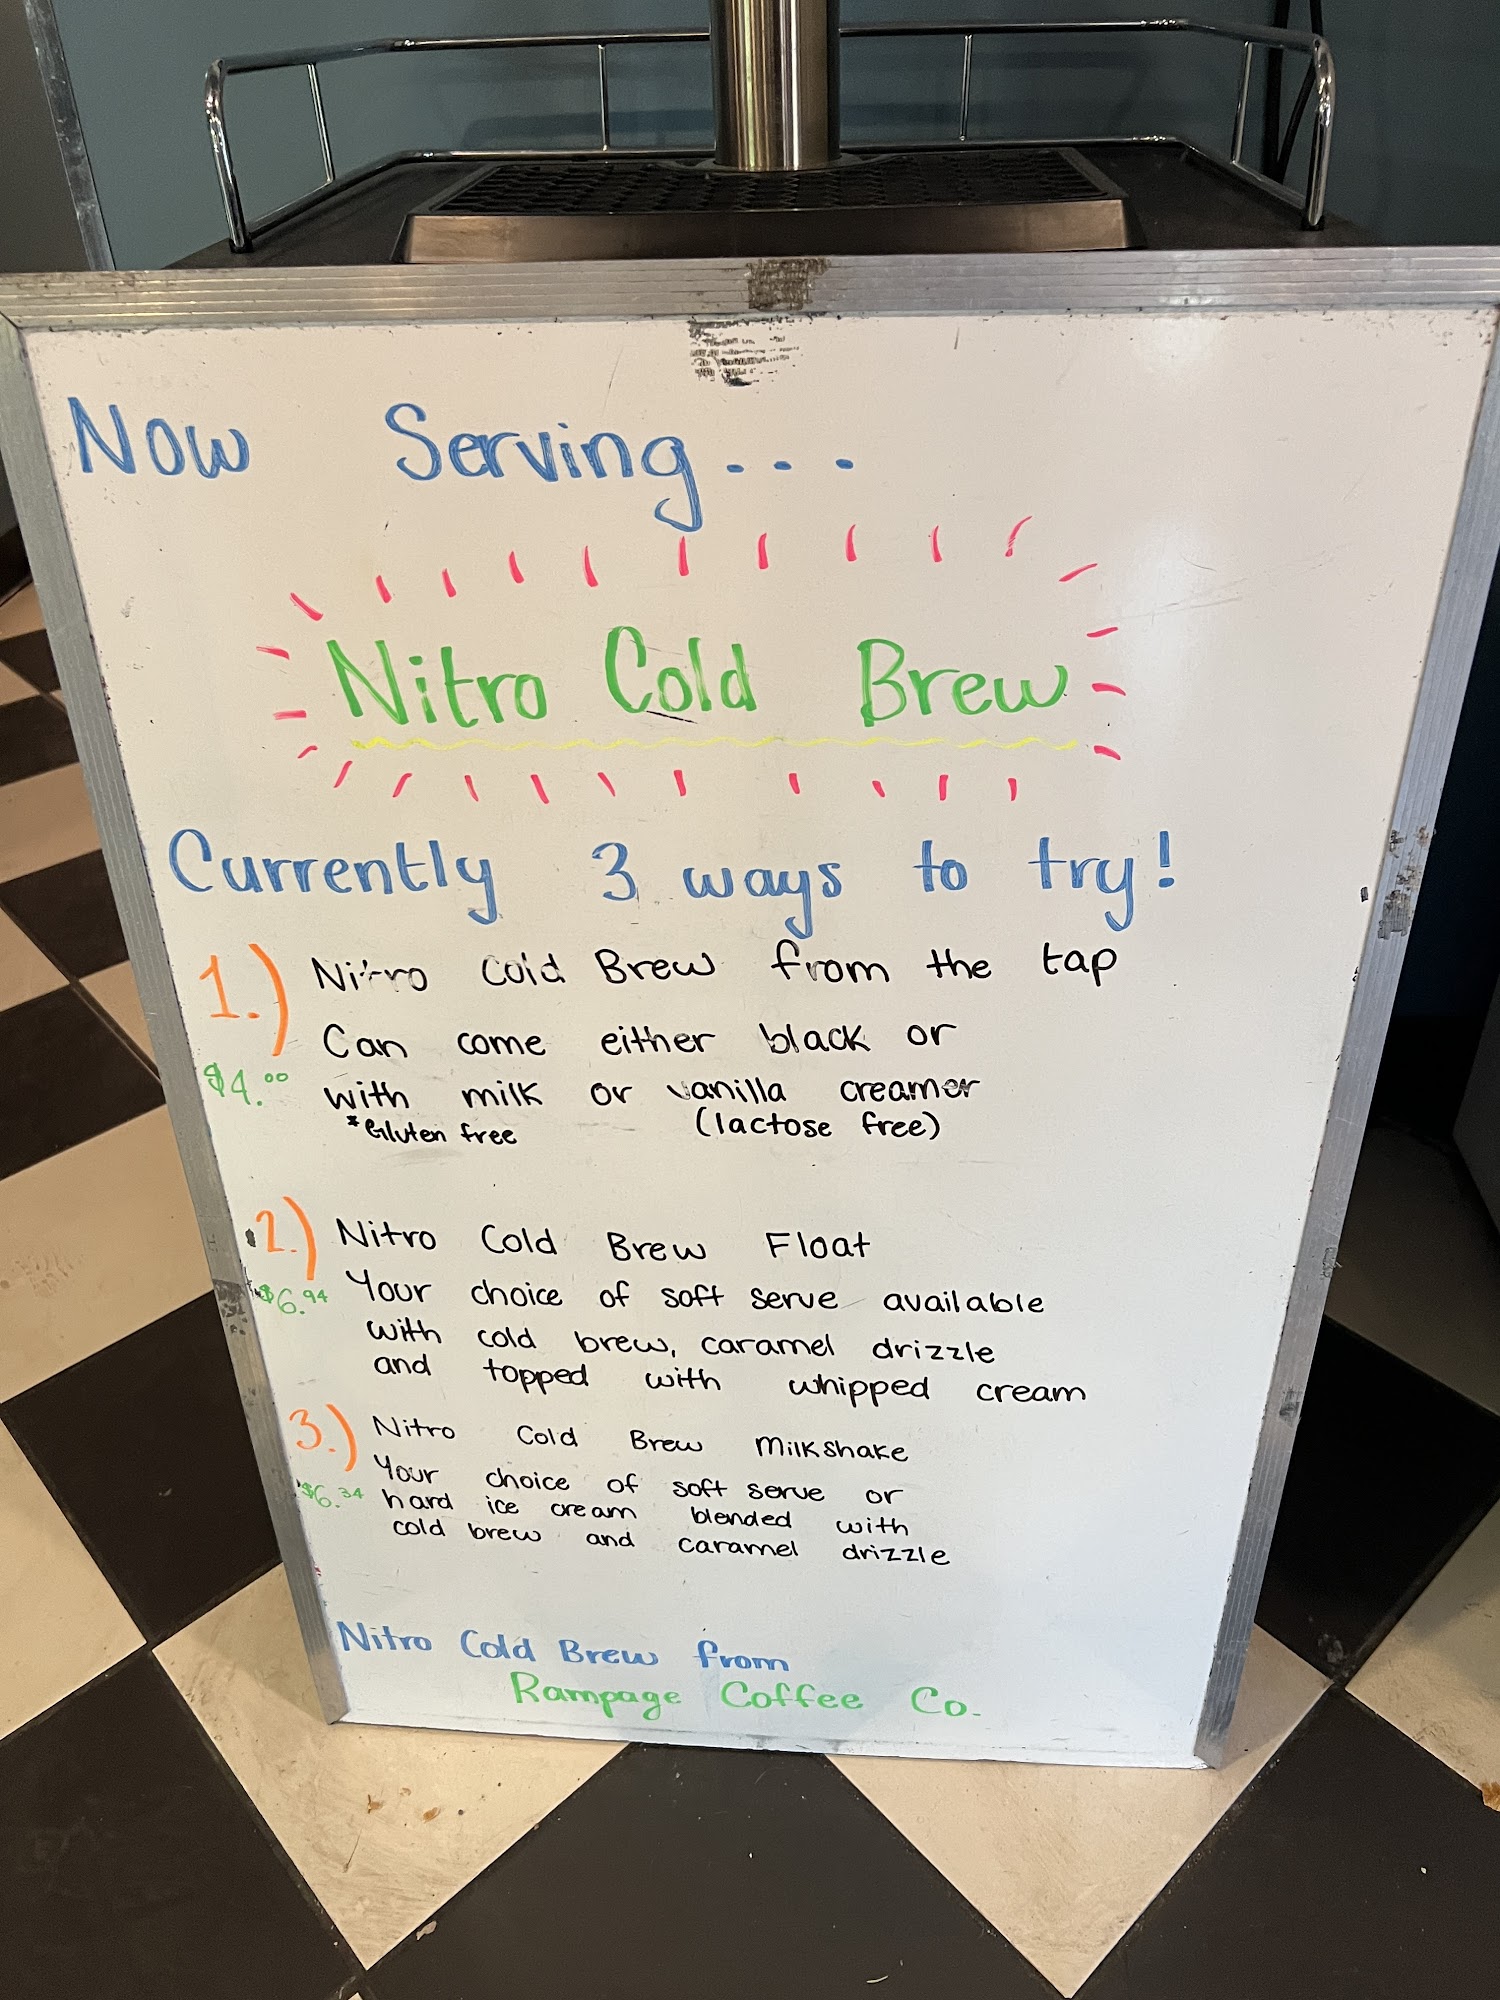 Now Serving...
Nitro Cold Brew
Currently 3 ways to try!
1.) Nitro Cold Brew from the tap
Can come either black or
$4.00 with milk or vanilla creamer
*Gluten free (lactose free)
2.) Nitro Cold Brew Float
$6.94 Your choice of soft serve available
with cold brew, caramel drizzle
and topped with whipped cream
3.) Nitro Cold Brew Milkshake
Your choice of soft serve or
$6.34 hard ice cream blended with
cold brew and caramel drizzle
Nitro Cold Brew from
Rampage Coffee Co.